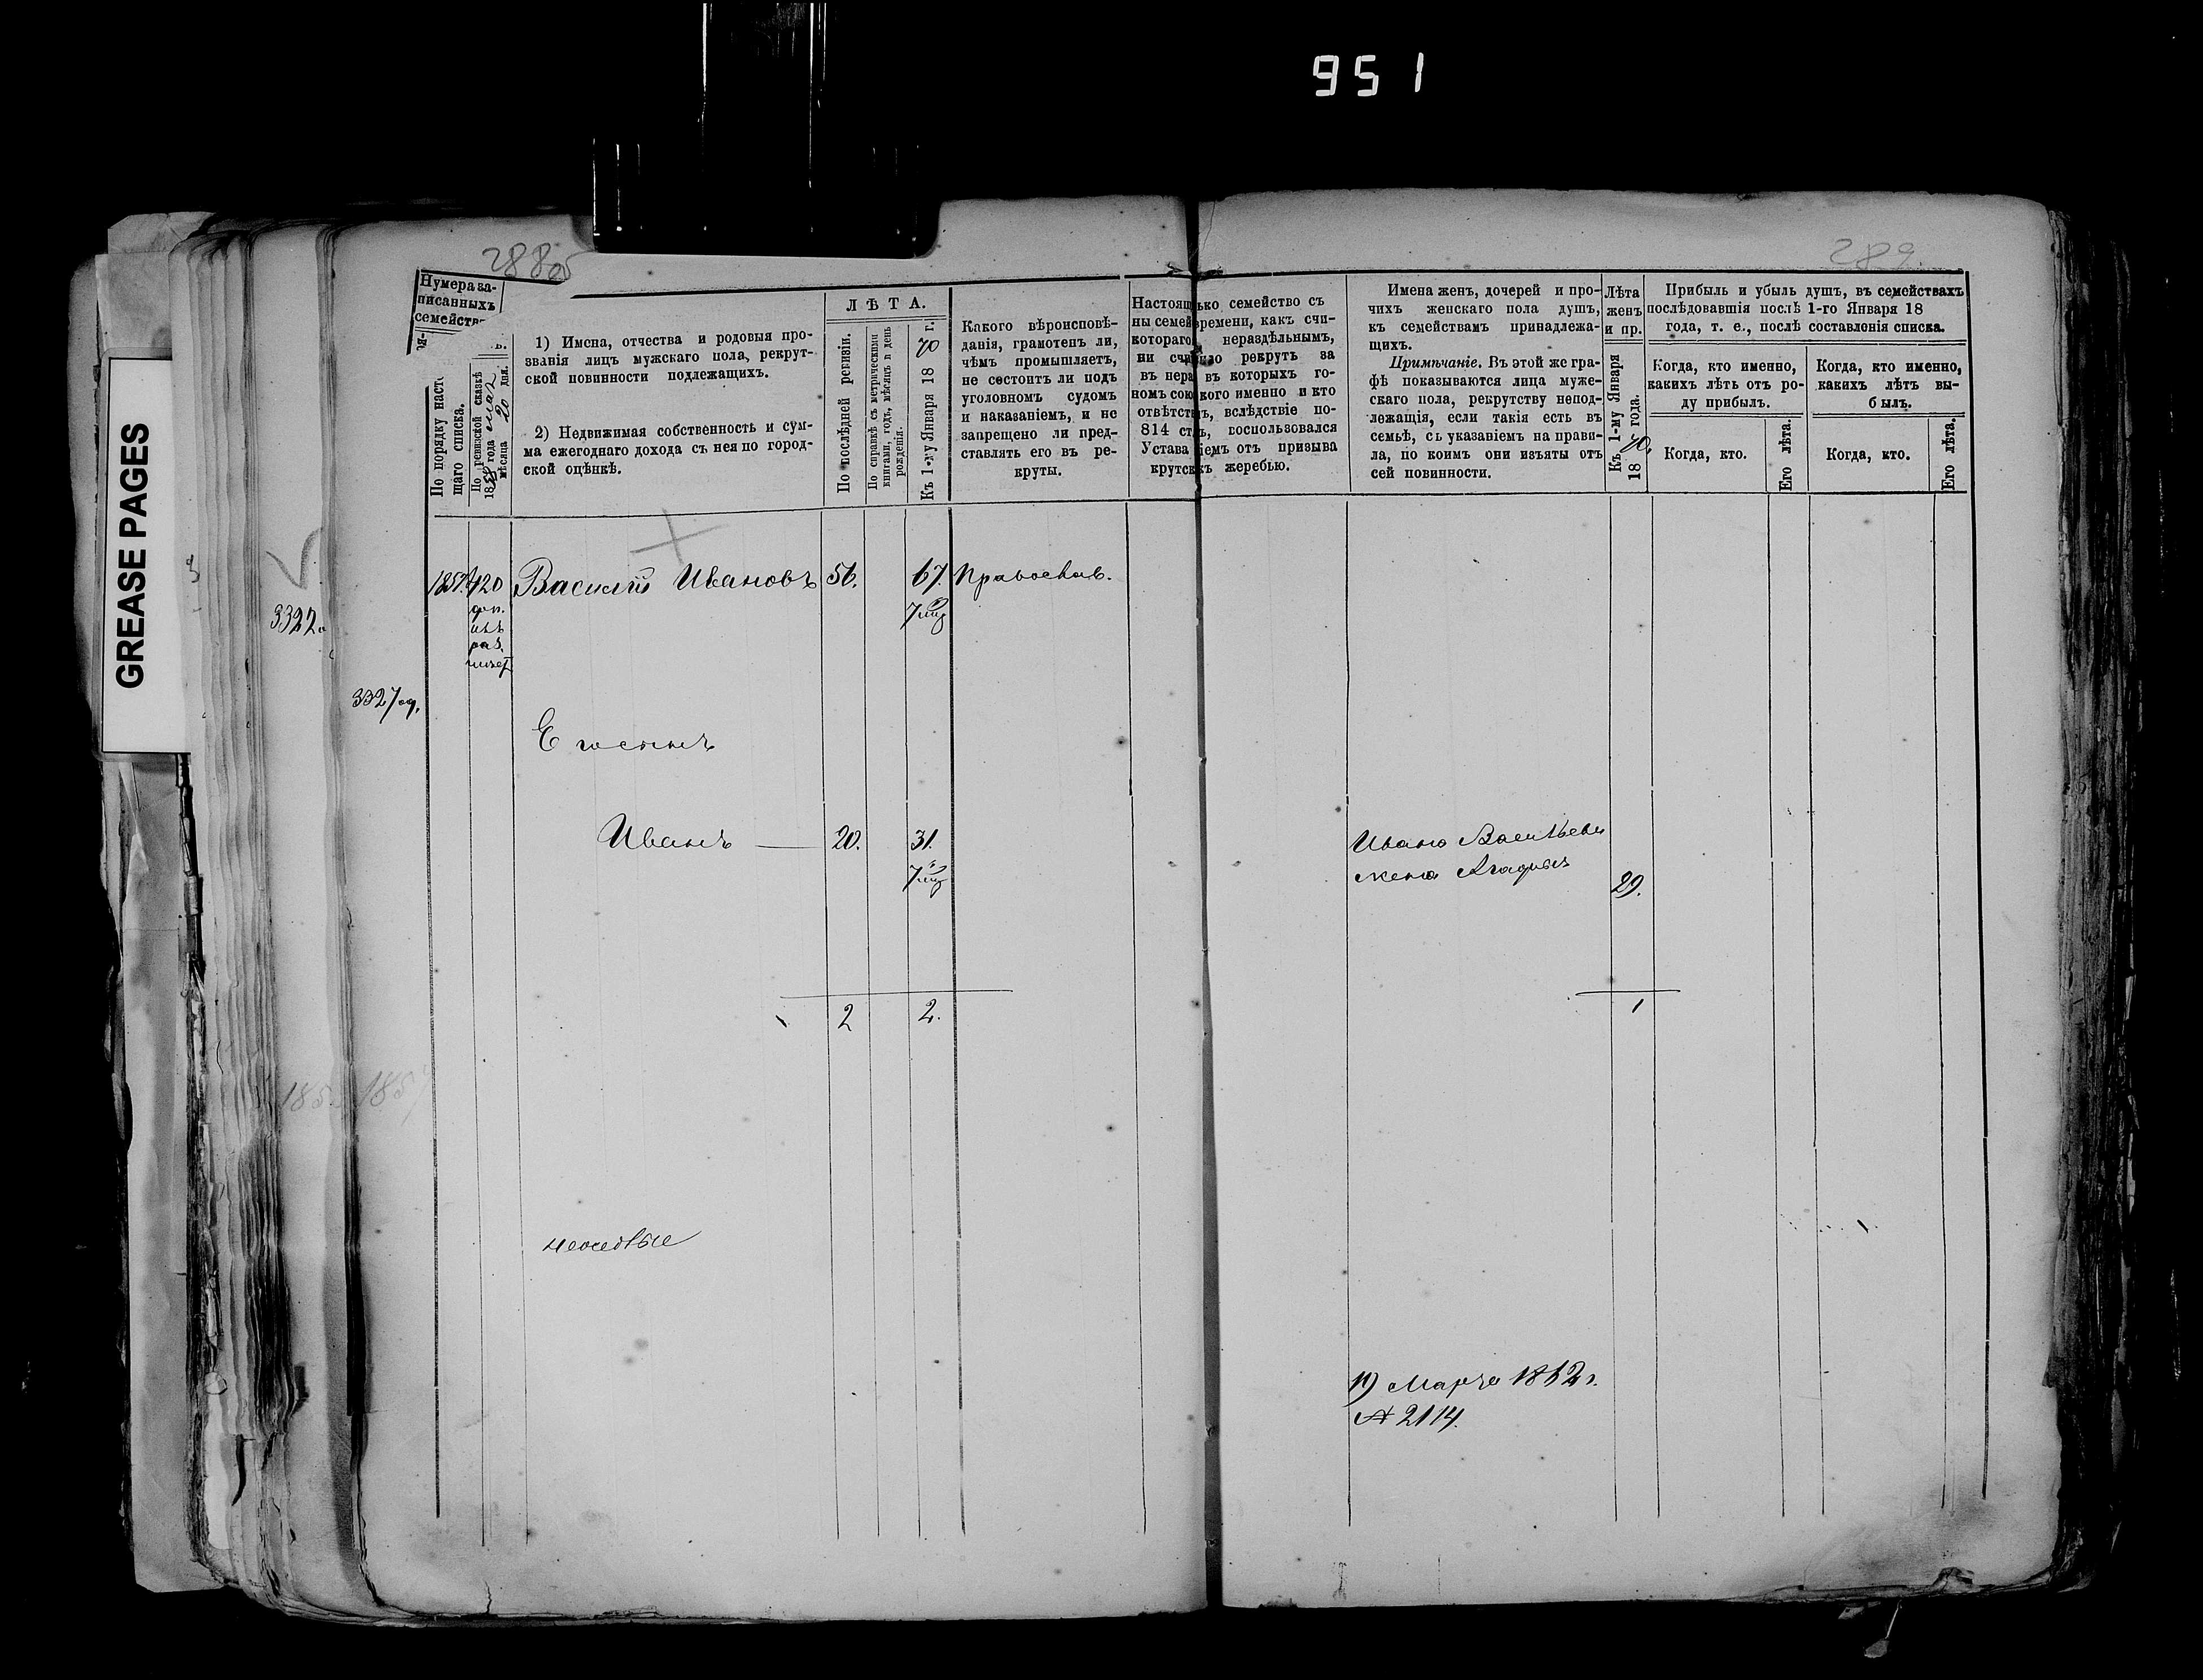 951
GREASE PAGES
288об
289.
Нумера за-
писанныхъ
семейств
По порядку наст
щаго списка.
По ревизской сказкѣ
1858 года мая
мѣсяца 20 дня.
1) Имена, отчества и родовыя про-
званія лицъ мужскаго пола, рекрут-
ской повинности подлежащихъ.
2) Недвижимая собственность и сум-
ма ежегоднаго дохода съ нея по город-
ской оцѣнкѣ.
ЛѢТА.
По послѣдней ревизіи.
По справкѣ съ метрическими
книгами, годъ, мѣсяцъ и день
рожденія.
Къ 1-му Января 1870 г.
Какого вѣроисповѣ-
данія, грамотенъ ли,
чѣмъ промышляетъ,
не состоитъ ли подъ
уголовномъ судомъ
и наказаніемъ, и не
запрещено ли пред-
ставлять его въ ре-
круты.
Настоящ
ны семей
котораго
ни счи
въ нера
номъ сою
отвѣтств
814 ст
Устава
крутск
ько семейство съ
времени, какъ счи-
нераздѣльнымъ,
рекрутъ за
въ которыхъ го-
кого именно и кто
ъ, вслѣдствіе по-
ъ, воспользовался
іемъ отъ призыва
ъ жеребью.
Имена женъ, дочерей и про-
чихъ женскаго пола душъ,
къ семействамъ принадлежа-
щихъ.
Примѣчаніе. Въ этой же гра-
фѣ показываются лица муже-
скаго пола, рекрутству непод-
лежащія, если такія есть въ
семьѣ, съ указаніемъ на прави-
ла, по коимъ они изъяты отъ
сей повинности.
Лѣта
женъ
и пр.
Къ 1-му Января
1870 года.
Прибыль и убыль душъ, въ семействахъ
послѣдовавшія послѣ 1-го Января 18
года, т. е., послѣ составленія списка.
Когда, кто именно,
какихъ лѣтъ отъ ро-
ду прибылъ.
Когда, кто именно,
какихъ лѣтъ вы-
былъ.
Когда, кто.
Его лѣта.
Когда, кто.
Его лѣта.
420 Василій Ивановъ 56. 67. Православ.
доп.
3322
3327
Его сынъ
Иванъ — 20. 31.
Ивана Васильева
жена Агафья 29.
2 2. 1
19 Марта 1862 г.
№ 2114.